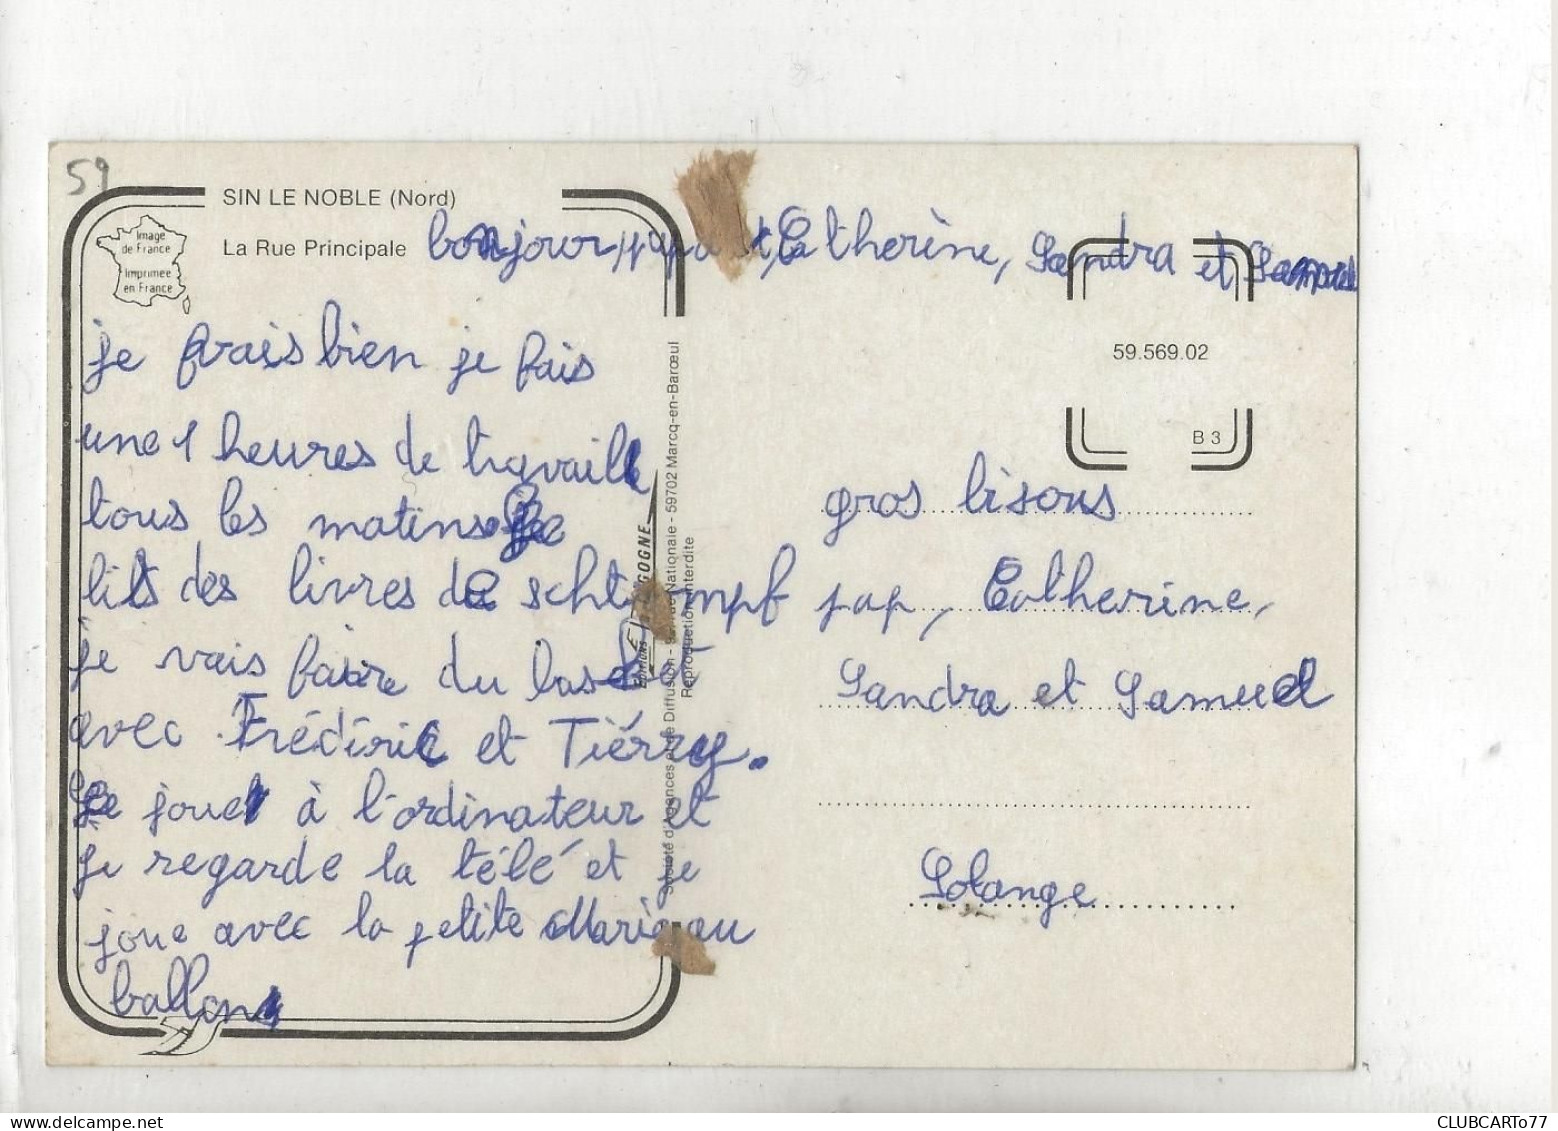 59
SIN LE NOBLE (Nord)
La Rue Principale
Image
de France
Imprimée
en France
bonjour, Catherine, Sandra et Samuel
je vrais bien je fais
une 1 heures de travaill
tous les matins je
lits des livres de scht mpf
je vais faire du basket
avec Frédéric et Tiérry.
Je joue à l'ordinateur et
je regarde la télé et je
joue avec la petite Marie au
ballon
59.569.02
B 3
gros bisous
pap, Catherine,
Sandra et Samuel
Solange
Société d'Agences et de Diffusion - Nationale - 59702 Marcq-en-Barœul
Reproduction interdite
EDITIONS GOGNE
CLUBCARTO77